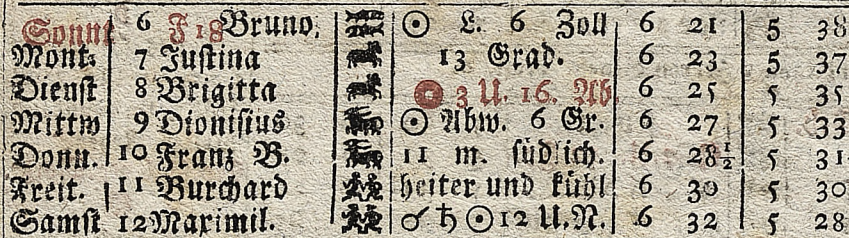 Sonnt 6 F 18 Bruno. ☉ L. 6 Zoll 6 21 5 38
Mont. 7 Justina 13 Grad. 6 23 5 37
Dienst 8 Brigitta 3 U. 16. Ab. 6 25 5 35
Mittw 9 Dionisius ☉ Abw. 6 Gr. 6 27 5 33
Donn. 10 Franz B. 11 m. südlich. 6 28½ 5 31
Freit. 11 Burchard heiter und kühl 6 30 5 30
Samst 12 Maximil. ☌ ♄ ☉ 12 U.N. 6 32 5 28